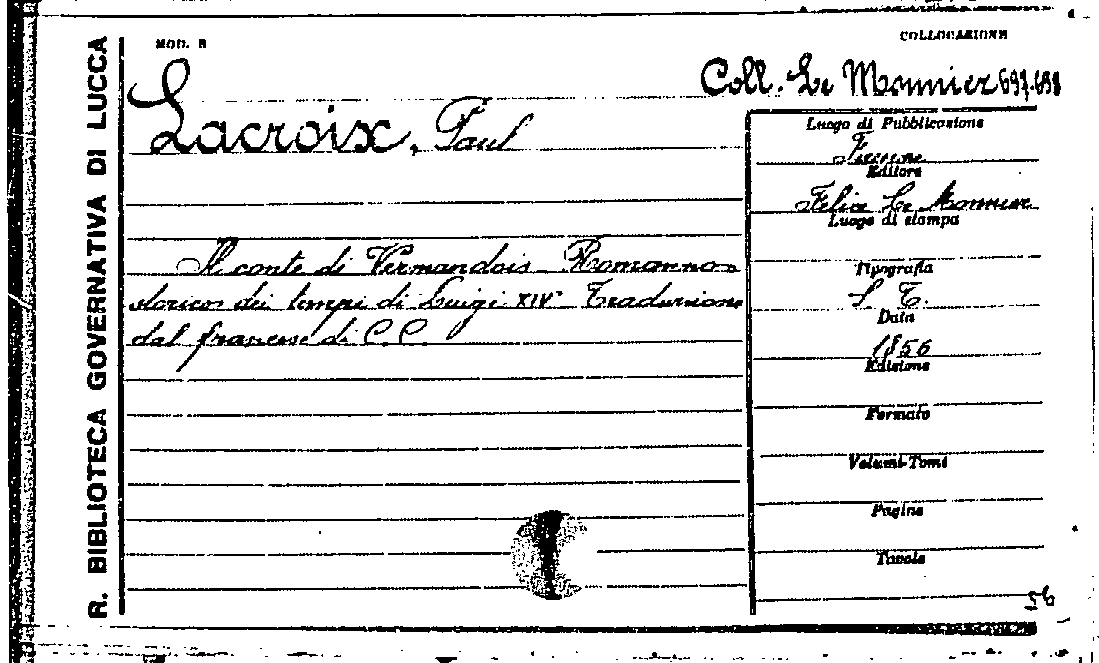 R. BIBLIOTECA GOVERNATIVA DI LUCCA
MOD. B
COLLOCAZIONE
Coll. Le Monnier 697-698
Lacroix, Paul
Il conte di Vermandois - Romanno
storico dei tempi di Luigi XIV° Traduzione
dal francese di C. C.
Luogo di Pubblicazione
Firenze
Editore
Felice Le Monnier
Luogo di stampa
Tipografia
S. T.
Data
1856
Edizione
Formato
Volumi-Tomi
Pagine
Tavole
56